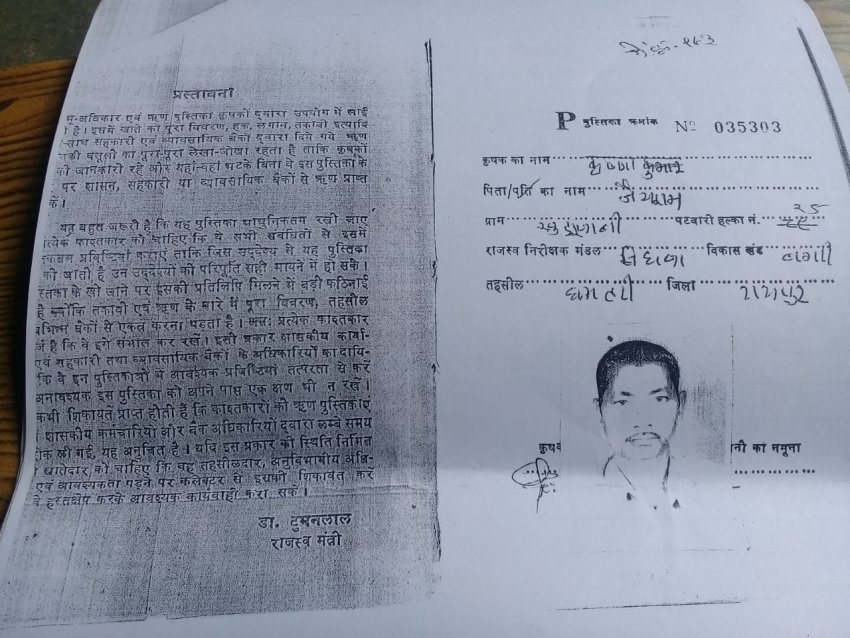 प्रस्तावना
भू-अधिकार एवं ऋण पुस्तिका कृषकों द्वारा उपयोग में लाई
है। इसमें खाते का पूरा विवरण, हक, लगान, तकावी इत्यादि
साथ सहकारी एवं व्यावसायिक बैंकों द्वारा दिये गये ऋण
वसूली का पूरा-पूरा लेखा-जोखा रहता है ताकि कृषकों
को जानकारी रहे और यहां-वहां भटके बिना वे इस पुस्तिका के
पर शासन, सहकारी या व्यावसायिक बैंकों से ऋण प्राप्त
यह बहुत जरूरी है कि यह पुस्तिका आधुनिकतम रखी जाए
काश्तकार को चाहिए कि वे सभी संबंधितों से इसमें
प्रविष्टियाँ कराएं ताकि जिस उद्देश्य से यह पुस्तिका
की जाती है उन उद्देश्यों की परिपूर्ति सही मायने में हो सके।
के खो जाने पर इसकी प्रतिलिपि मिलने में बड़ी कठिनाई
है क्योंकि तकावी एवं ऋण के बारे में पूरा विवरण, तहसील
बैंकों से एकत्र करना पड़ता है। अतः प्रत्येक काश्तकार
है कि वे इसे संभाल कर रखें। इसी प्रकार शासकीय कार्या-
एवं सहकारी तथा व्यावसायिक बैंकों के अधिकारियों का दायि-
कि वे इन पुस्तिकाओं में आवश्यक प्रविष्टियां तत्परता से करें
अनावश्यक इस पुस्तिका को अपने पास एक क्षण भी न रखें।
कभी शिकायत प्राप्त होती है कि काश्तकारों की ऋण पुस्तिकाएं
शासकीय कर्मचारियों और बैंक अधिकारियों द्वारा लम्बे समय
रोक ली गई, यह अनुचित है। यदि इस प्रकार की स्थिति निर्मित
खातेदार को चाहिए कि वह तहसीलदार, अनुविभागीय अधि-
एवं आवश्यकता पड़ने पर कलेक्टर से इसकी शिकायत करें
वे हस्तक्षेप करके आवश्यक कार्यवाही करा सकें।
डा. टुमनलाल
राजस्व मंत्री
P पुस्तिका क्रमांक № 035303
कृषक का नाम कृष्णा कुमार
पिता/पति का नाम जैराम
ग्राम पटवारी हल्का नं. २५
राजस्व निरीक्षक मंडल विकास खंड
तहसील धमतरी जिला रायपुर
कृषक नी का नमूना